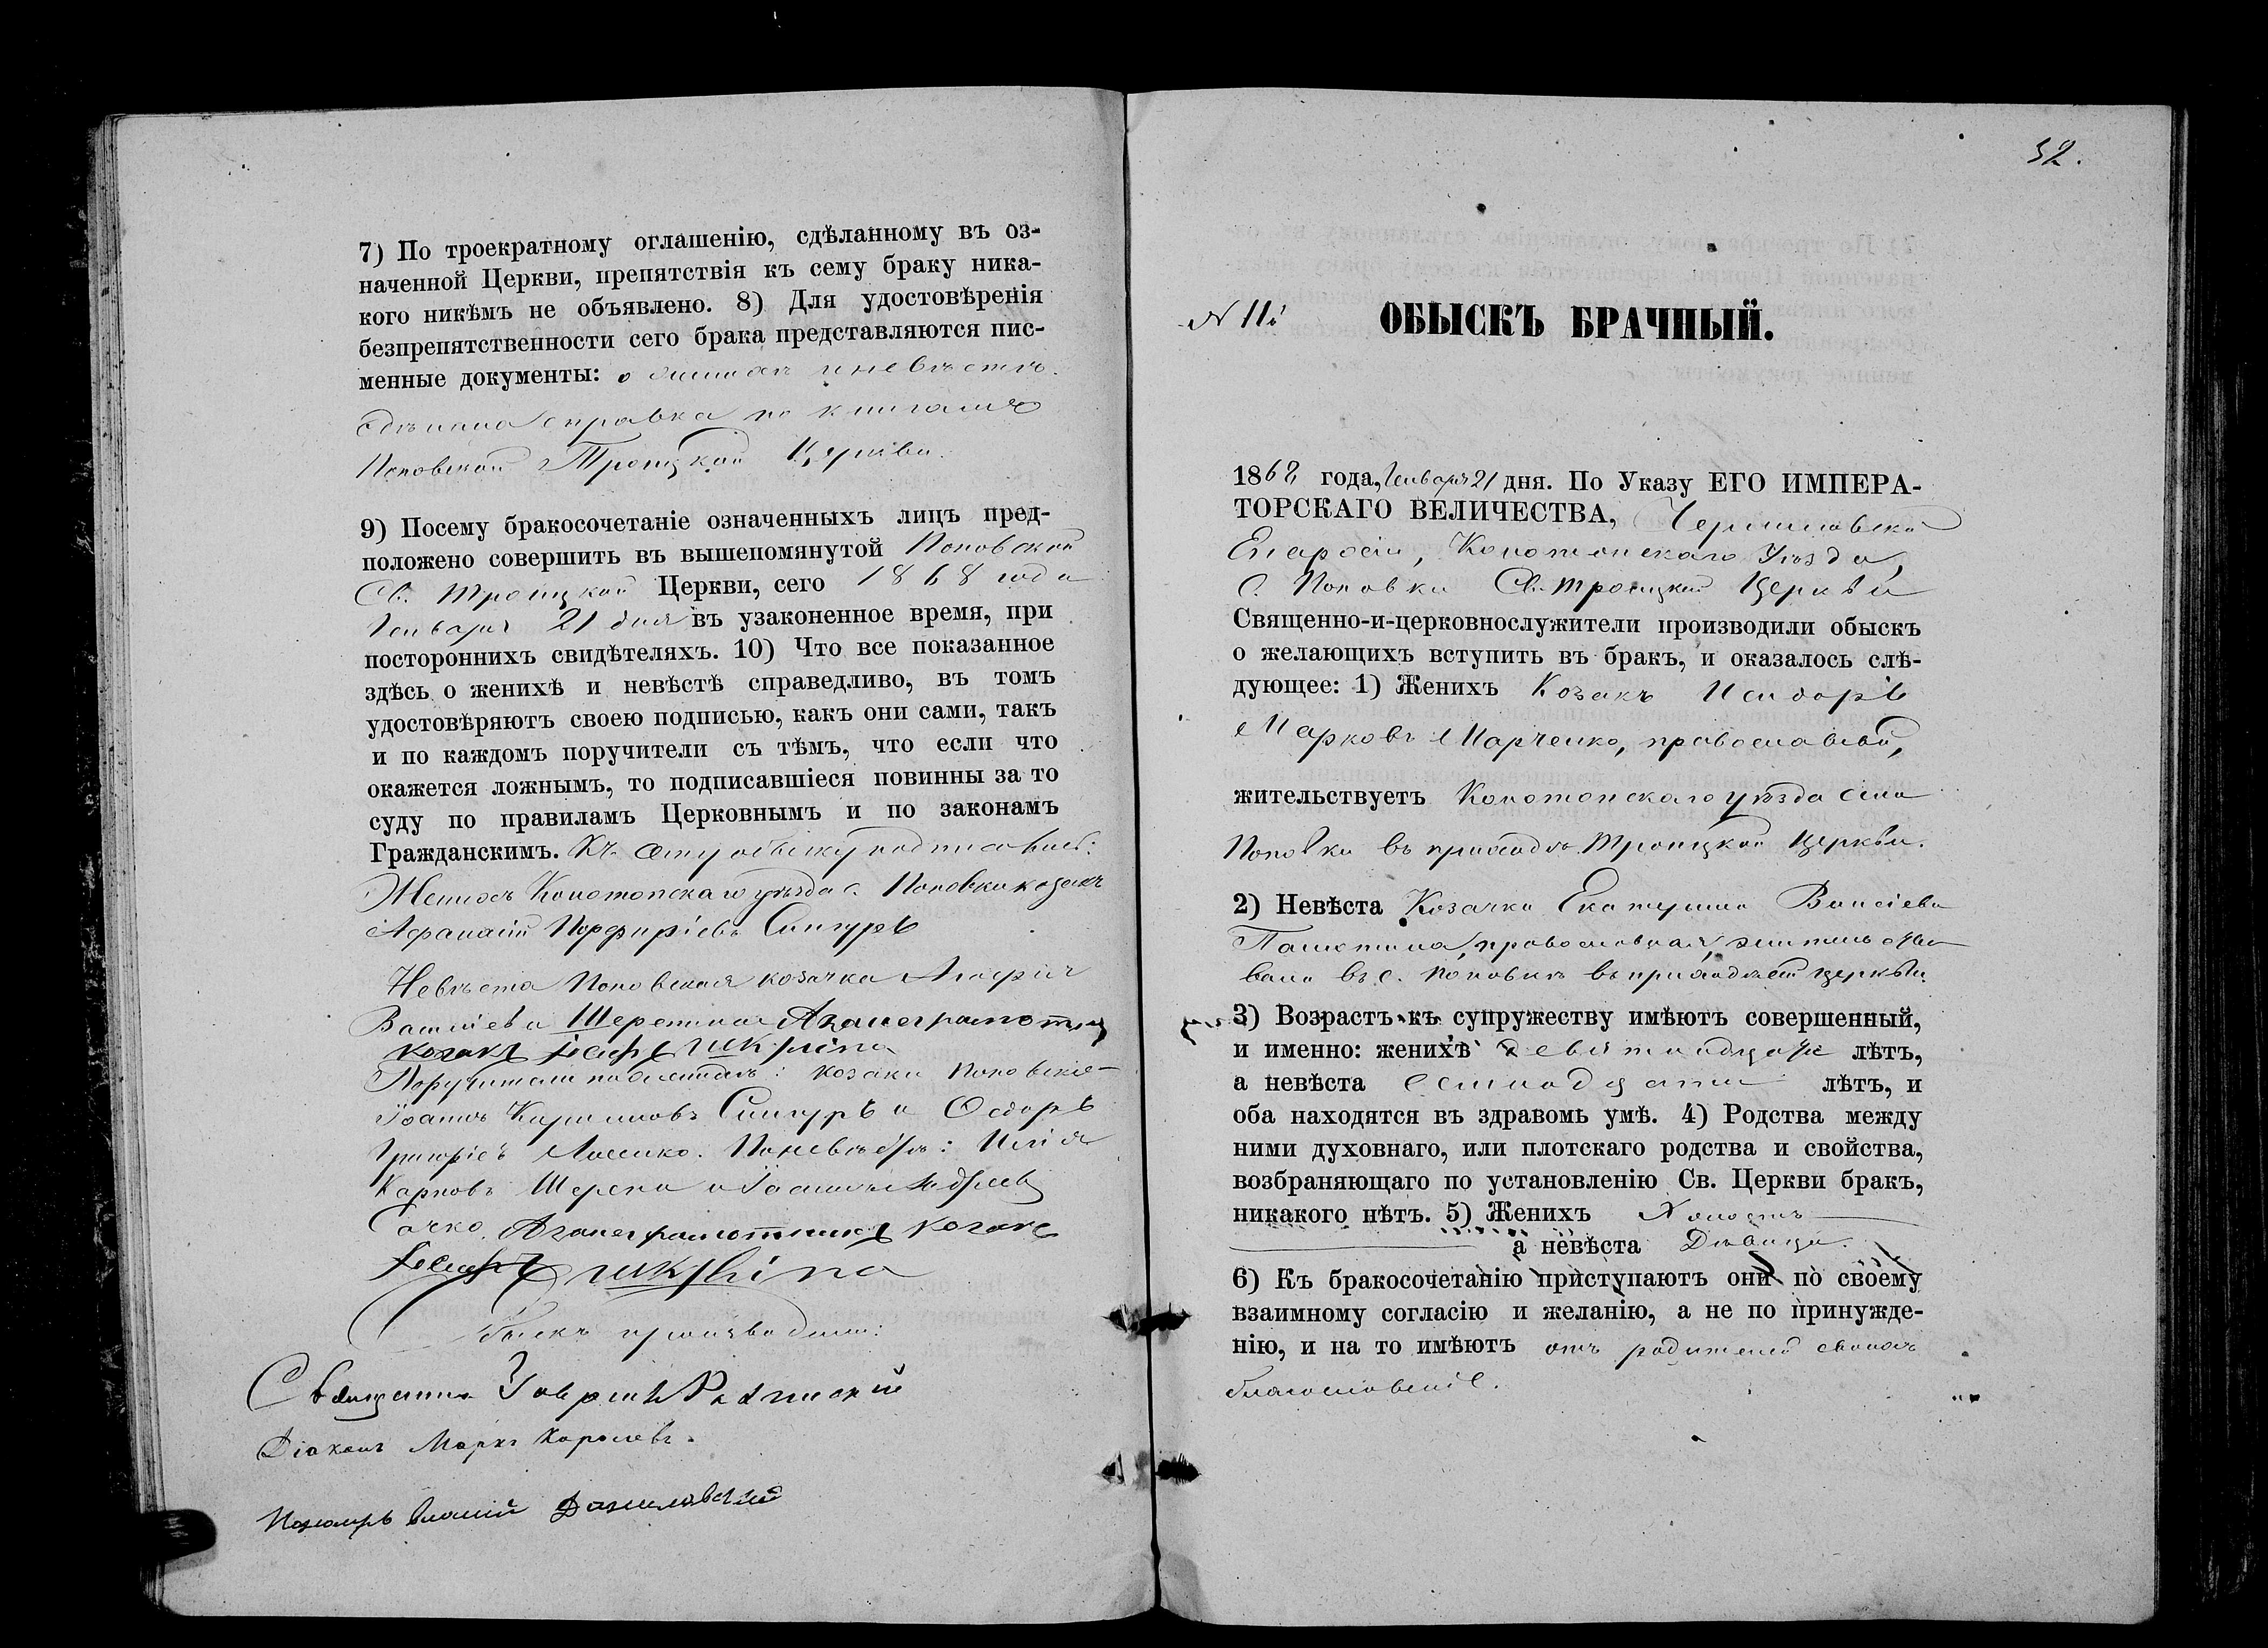 7) По троекратному оглашенію, сдѣланному въ оз-
наченной Церкви, препятствія къ сему браку ника-
кого никѣмъ не объявлено. 8) Для удостовѣренія
безпрепятственности сего брака представляются пис-
менные документы: о женихѣ и невѣстѣ
сдѣлана справка по книгамъ
Поповской Троицкой Церкви.
9) Посему бракосочетаніе означенныхъ лицъ пред-
положено совершить въ вышепомянутой Поповской
Св. Троицкой Церкви, сего 1868 года
Генваря 21 дня въ узаконенное время, при
постороннихъ свидѣтеляхъ. 10) Что все показанное
здѣсь о женихѣ и невѣстѣ справедливо, въ томъ
удостовѣряютъ своею подписью, какъ они сами, такъ
и по каждомъ поручители съ тѣмъ, что если что
окажется ложнымъ, то подписавшіеся повинны за то
суду по правиламъ Церковнымъ и по законамъ
Гражданскимъ. Къ сему обыску подписались:
Женихъ Конотопскаго уѣзда с. Поповки козакъ
Афанасій Порфиріевъ Сингуръ
Невѣста Поповская козачка
Василіева
козакъ
Поручители по женихѣ: козаки Поповскіе
Іоаннъ Кириловъ Сингуръ и Ѳедоръ
Григоріевъ По невѣстѣ: Илія
Карповъ Шерепа и
козакъ
Обыскъ производили:
Священникъ
Діаконъ Маркъ Королевъ.
Пономарь Даниловскій
32.
№ 11
ОБЫСКЪ БРАЧНЫЙ.
1868 года, Генваря 21 дня. По Указу ЕГО ИМПЕРА-
ТОРСКАГО ВЕЛИЧЕСТВА, Черниговской
Епархіи, Конотопскаго Уѣзда,
с. Поповки Св. Троицкой Церкви
Священно-и-церковнослужители производили обыскъ
о желающихъ вступить въ бракъ, и оказалось слѣ-
дующее: 1) Женихъ Козакъ Исидоръ
Марковъ Марченко, православный,
жительствуетъ Конотопскаго уѣзда села
Поповки въ приходѣ Троицкой Церкви.
2) Невѣста Козачка Екатерина
православная, жительство-
вала въ с. Поповкѣ въ приходѣ сей церкви.
3) Возрастъ къ супружеству имѣютъ совершенный,
и именно: женихъ девятнадцать лѣтъ,
а невѣста семнадцати лѣтъ, и
оба находятся въ здравомъ умѣ. 4) Родства между
ними духовнаго, или плотскаго родства и свойства,
возбраняющаго по установленію Св. Церкви бракъ,
никакого нѣтъ. 5) Женихъ Холостъ
а невѣста Дѣвица.
6) Къ бракосочетанію приступаютъ они по своему
взаимному согласію и желанію, а не по принужде-
нію, и на то имѣютъ отъ родителей своихъ
благословеніе.